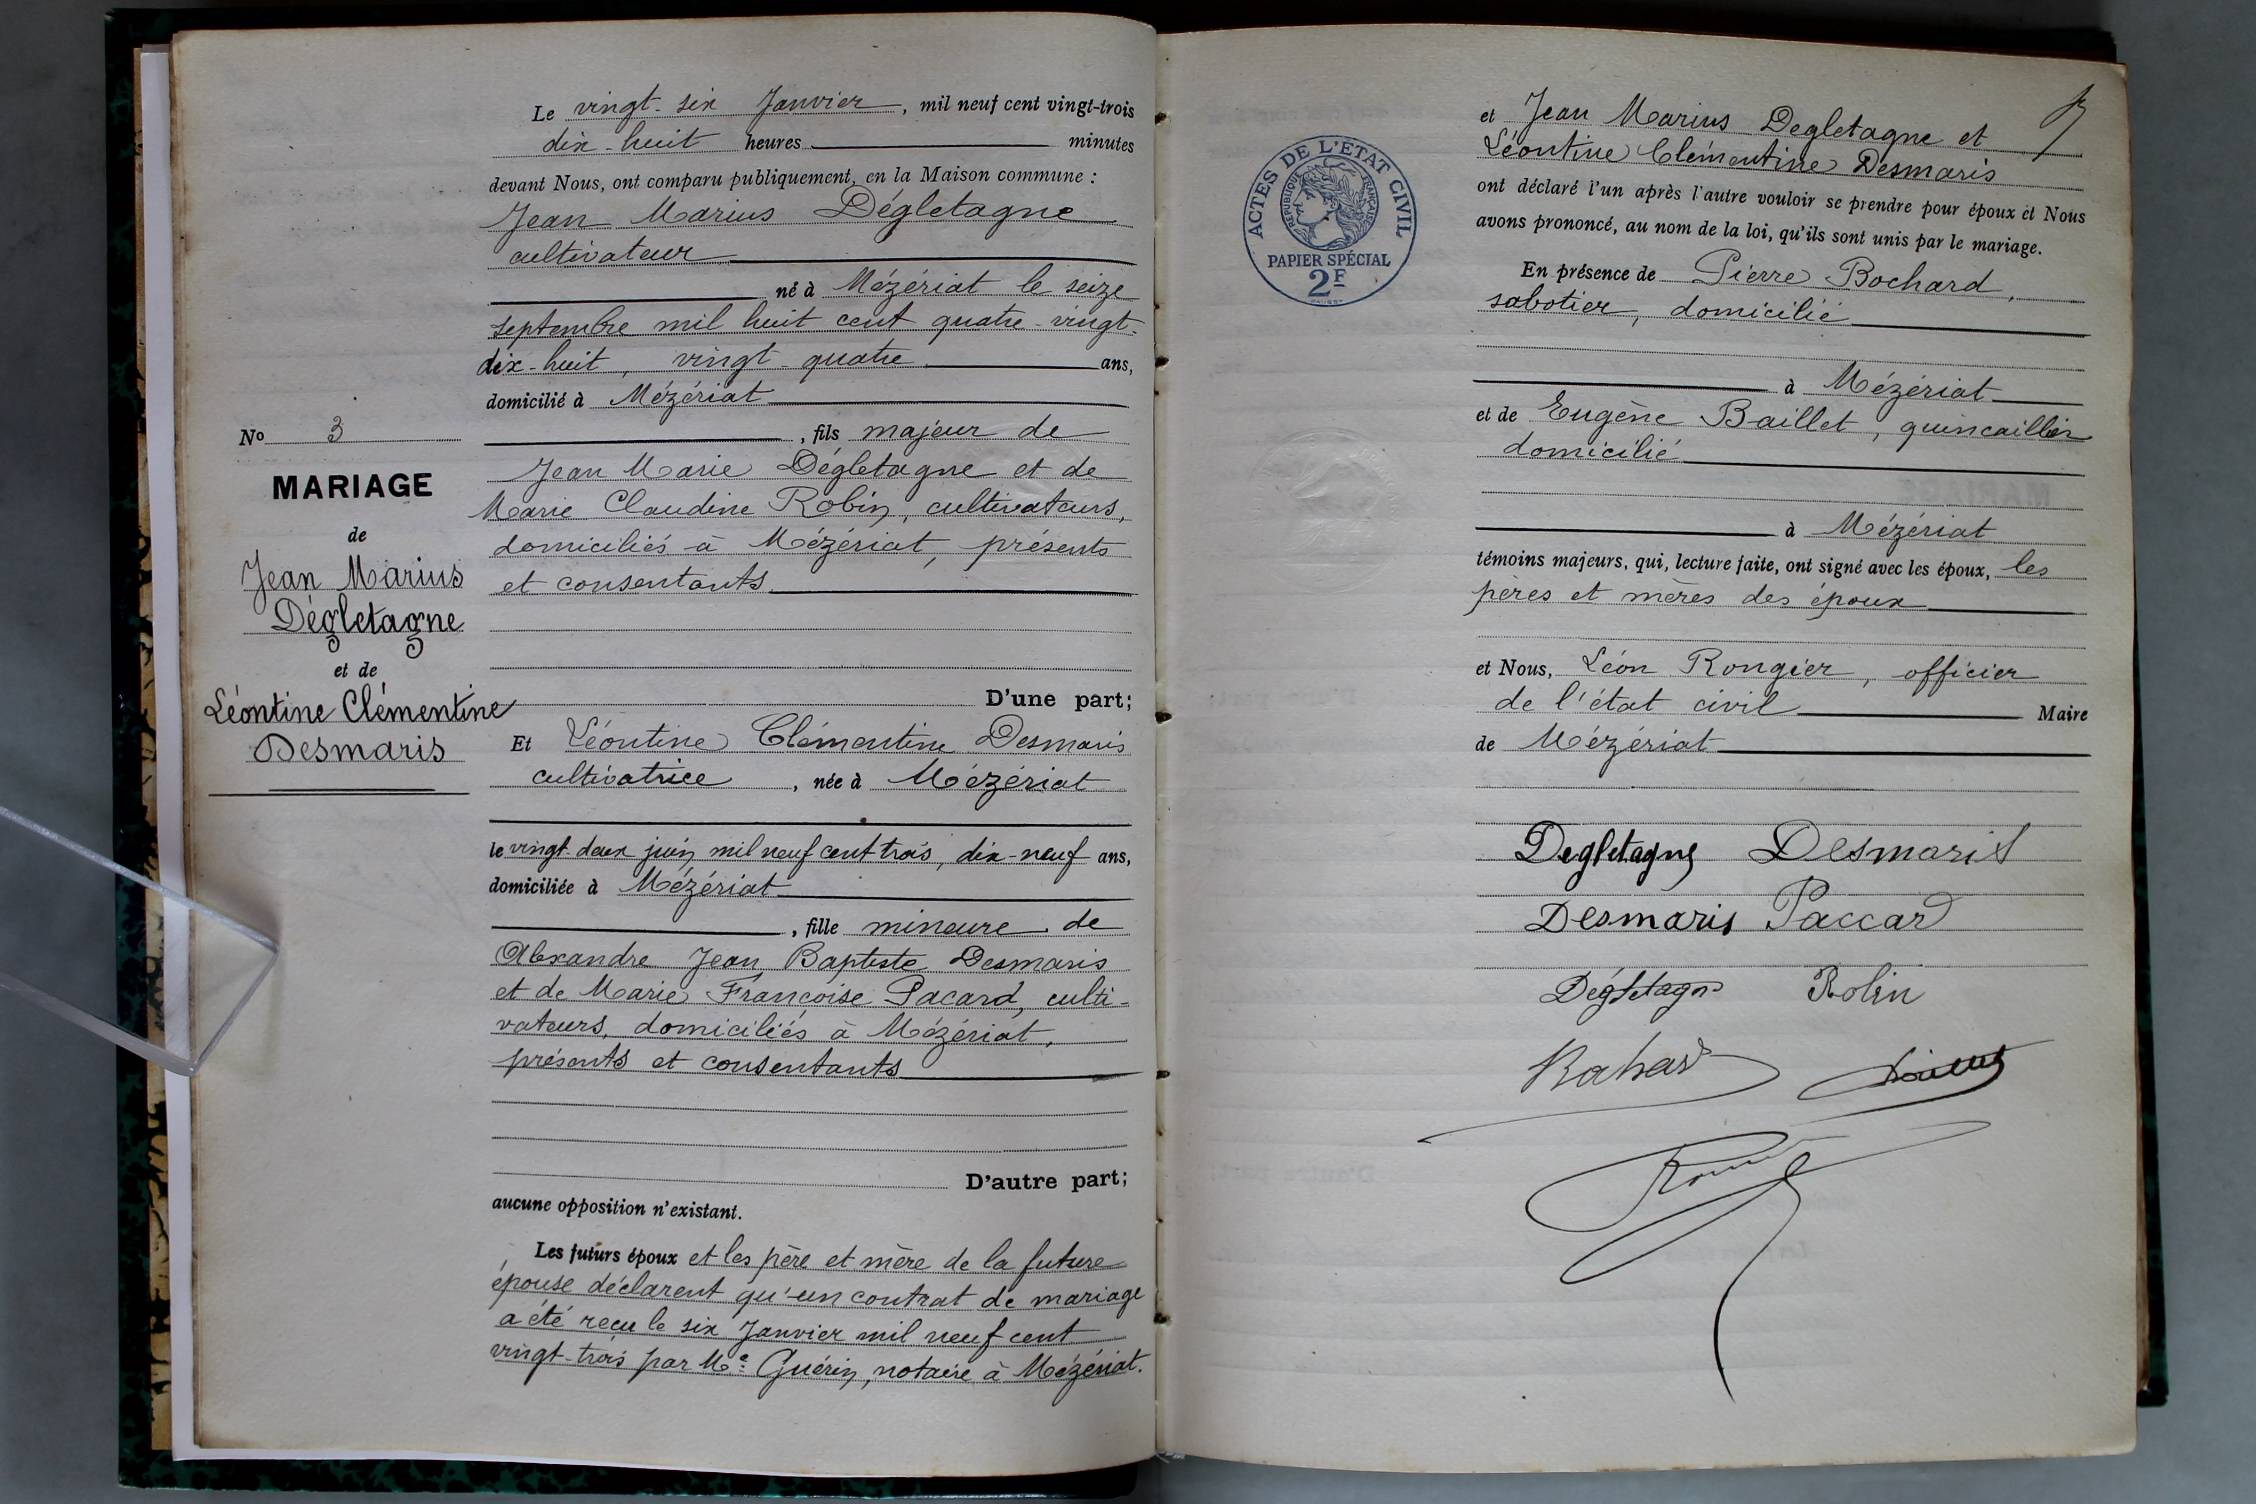 Le vingt-six Janvier, mil neuf cent vingt-trois
dix-huit heures minutes
devant Nous, ont comparu publiquement, en la Maison commune :
Jean Marius Dégletagne
cultivateur
né à Mézériat le seize
septembre mil huit cent quatre-vingt-
dix-huit, vingt-quatre ans,
domicilié à Mézériat
, fils majeur de
Jean Marie Dégletagne et de
Marie Claudine Robin, cultivateurs,
domiciliés à Mézériat, présents
et consentants
D'une part;
Et Léontine Clémentine Desmaris
cultivatrice, née à Mézériat
le vingt-deux juin mil neuf cent trois, dix-neuf ans,
domiciliée à Mézériat
, fille mineure de
Alexandre Jean Baptiste Desmaris
et de Marie Françoise Pacard, culti-
vateurs, domiciliés à Mézériat,
présents et consentants
D'autre part;
aucune opposition n'existant.
Les futurs époux et les père et mère de la future
épouse déclarent qu'un contrat de mariage
a été reçu le six Janvier mil neuf cent
vingt-trois par Me Guérin, notaire à Mézériat.
No 3
MARIAGE
de
Jean Marius
Dégletagne
et de
Léontine Clémentine
Desmaris
ACTES DE L'ÉTAT CIVIL
RÉPUBLIQUE FRANÇAISE
PAPIER SPÉCIAL
2F
et Jean Marius Degletagne et
Léontine Clémentine Desmaris
ont déclaré l'un après l'autre vouloir se prendre pour époux et Nous
avons prononcé, au nom de la loi, qu'ils sont unis par le mariage.
En présence de Pierre Bochard,
sabotier, domicilié
à Mézériat
et de Eugène Baillet, quincaillier
domicilié
à Mézériat
témoins majeurs, qui, lecture faite, ont signé avec les époux, les
pères et mères des époux
et Nous, Léon Rongier, officier
de l'état civil Maire
de Mézériat
Degletagne Desmaris
Desmaris Paccard
Dégletagne Robin